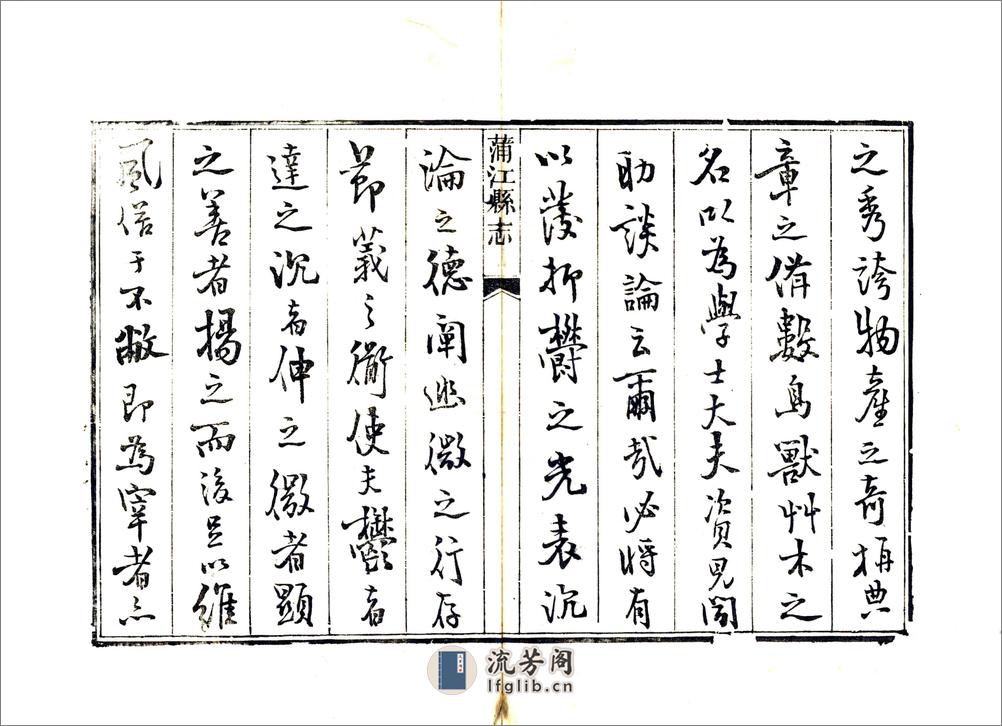 之秀誇物產之奇稱典
章之備數鳥獸艸木之
名以為學士大夫資見聞
助談論云爾哉必將有
以發抑鬱之光表沉
蒲江縣志
淪之德闡幽微之行存
節義之衛使夫鬱者
達之沉者伸之微者顯
之善者揚之而後足以維
風俗于不敝即為宰者亦
流芳阁
lfglib.cn